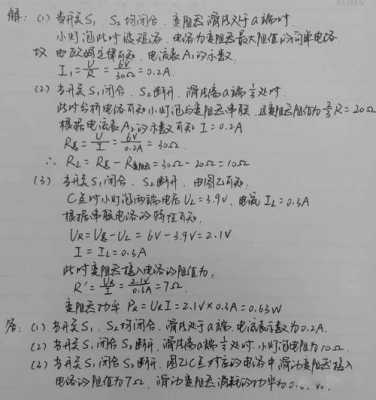 解: (1) 当开关S₁ S₂均闭合, 变阻器滑片处于a端时
小灯泡此时被短路, 电路为变阻器最大阻值的简单电路
故 由欧姆定律可知, 电流表A₁的示数
I₁=U/R=6V/30Ω=0.2A.
(2) 当开关S₁闭合. S₂断开. 滑片离a端⅓处时.
此时分析电路可知小灯泡与变阻器串联, 且变阻器阻值为⅔R=20Ω
根据电流表A₁的示数可知 I=0.2A
R总=U/I=6V/0.2A=30Ω.
∴ R_L=R总-R变阻器=30Ω-20Ω=10Ω
(3) 当开关S₁闭合. S₂断开. 由图乙可知.
C点时小灯泡两端电压U_L=3.9V. 电流I_L=0.3A
根据串联电路的特性可知.
U_R=U总-U_L=6V-3.9V=2.1V
I=I_L=0.3A
此时变阻器接入电路的阻值为,
R'=U_R/I=2.1V/0.3A=7Ω.
变阻器功率 P_R=U_R I=2.1V×0.3A=0.63W
答: (1) 当开关S₁. S₂均闭合. 滑片处于a端. 电流表示数为0.2A.
(2) 当开关S₁闭合S₂断开. 滑片离a端⅓处时. 小灯泡阻值为10Ω.
(3) 当开关S₁闭合S₂断开. 图乙C点对应的电路中滑动变阻器接入
电路的阻值为7Ω. 滑动变阻器消耗的功率为0.